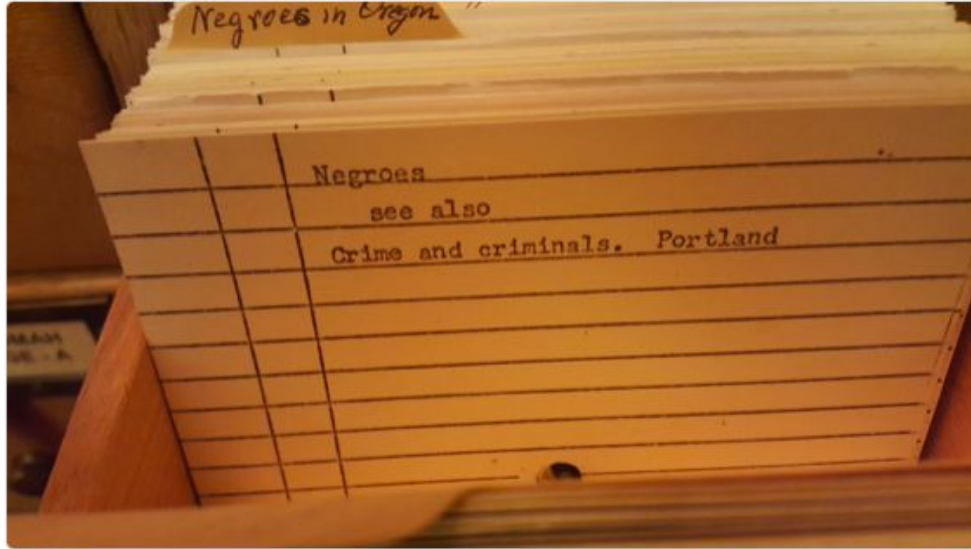 Negroes in Oregon "
Negroes
see also
Crime and criminals. Portland
MAH
GE - A